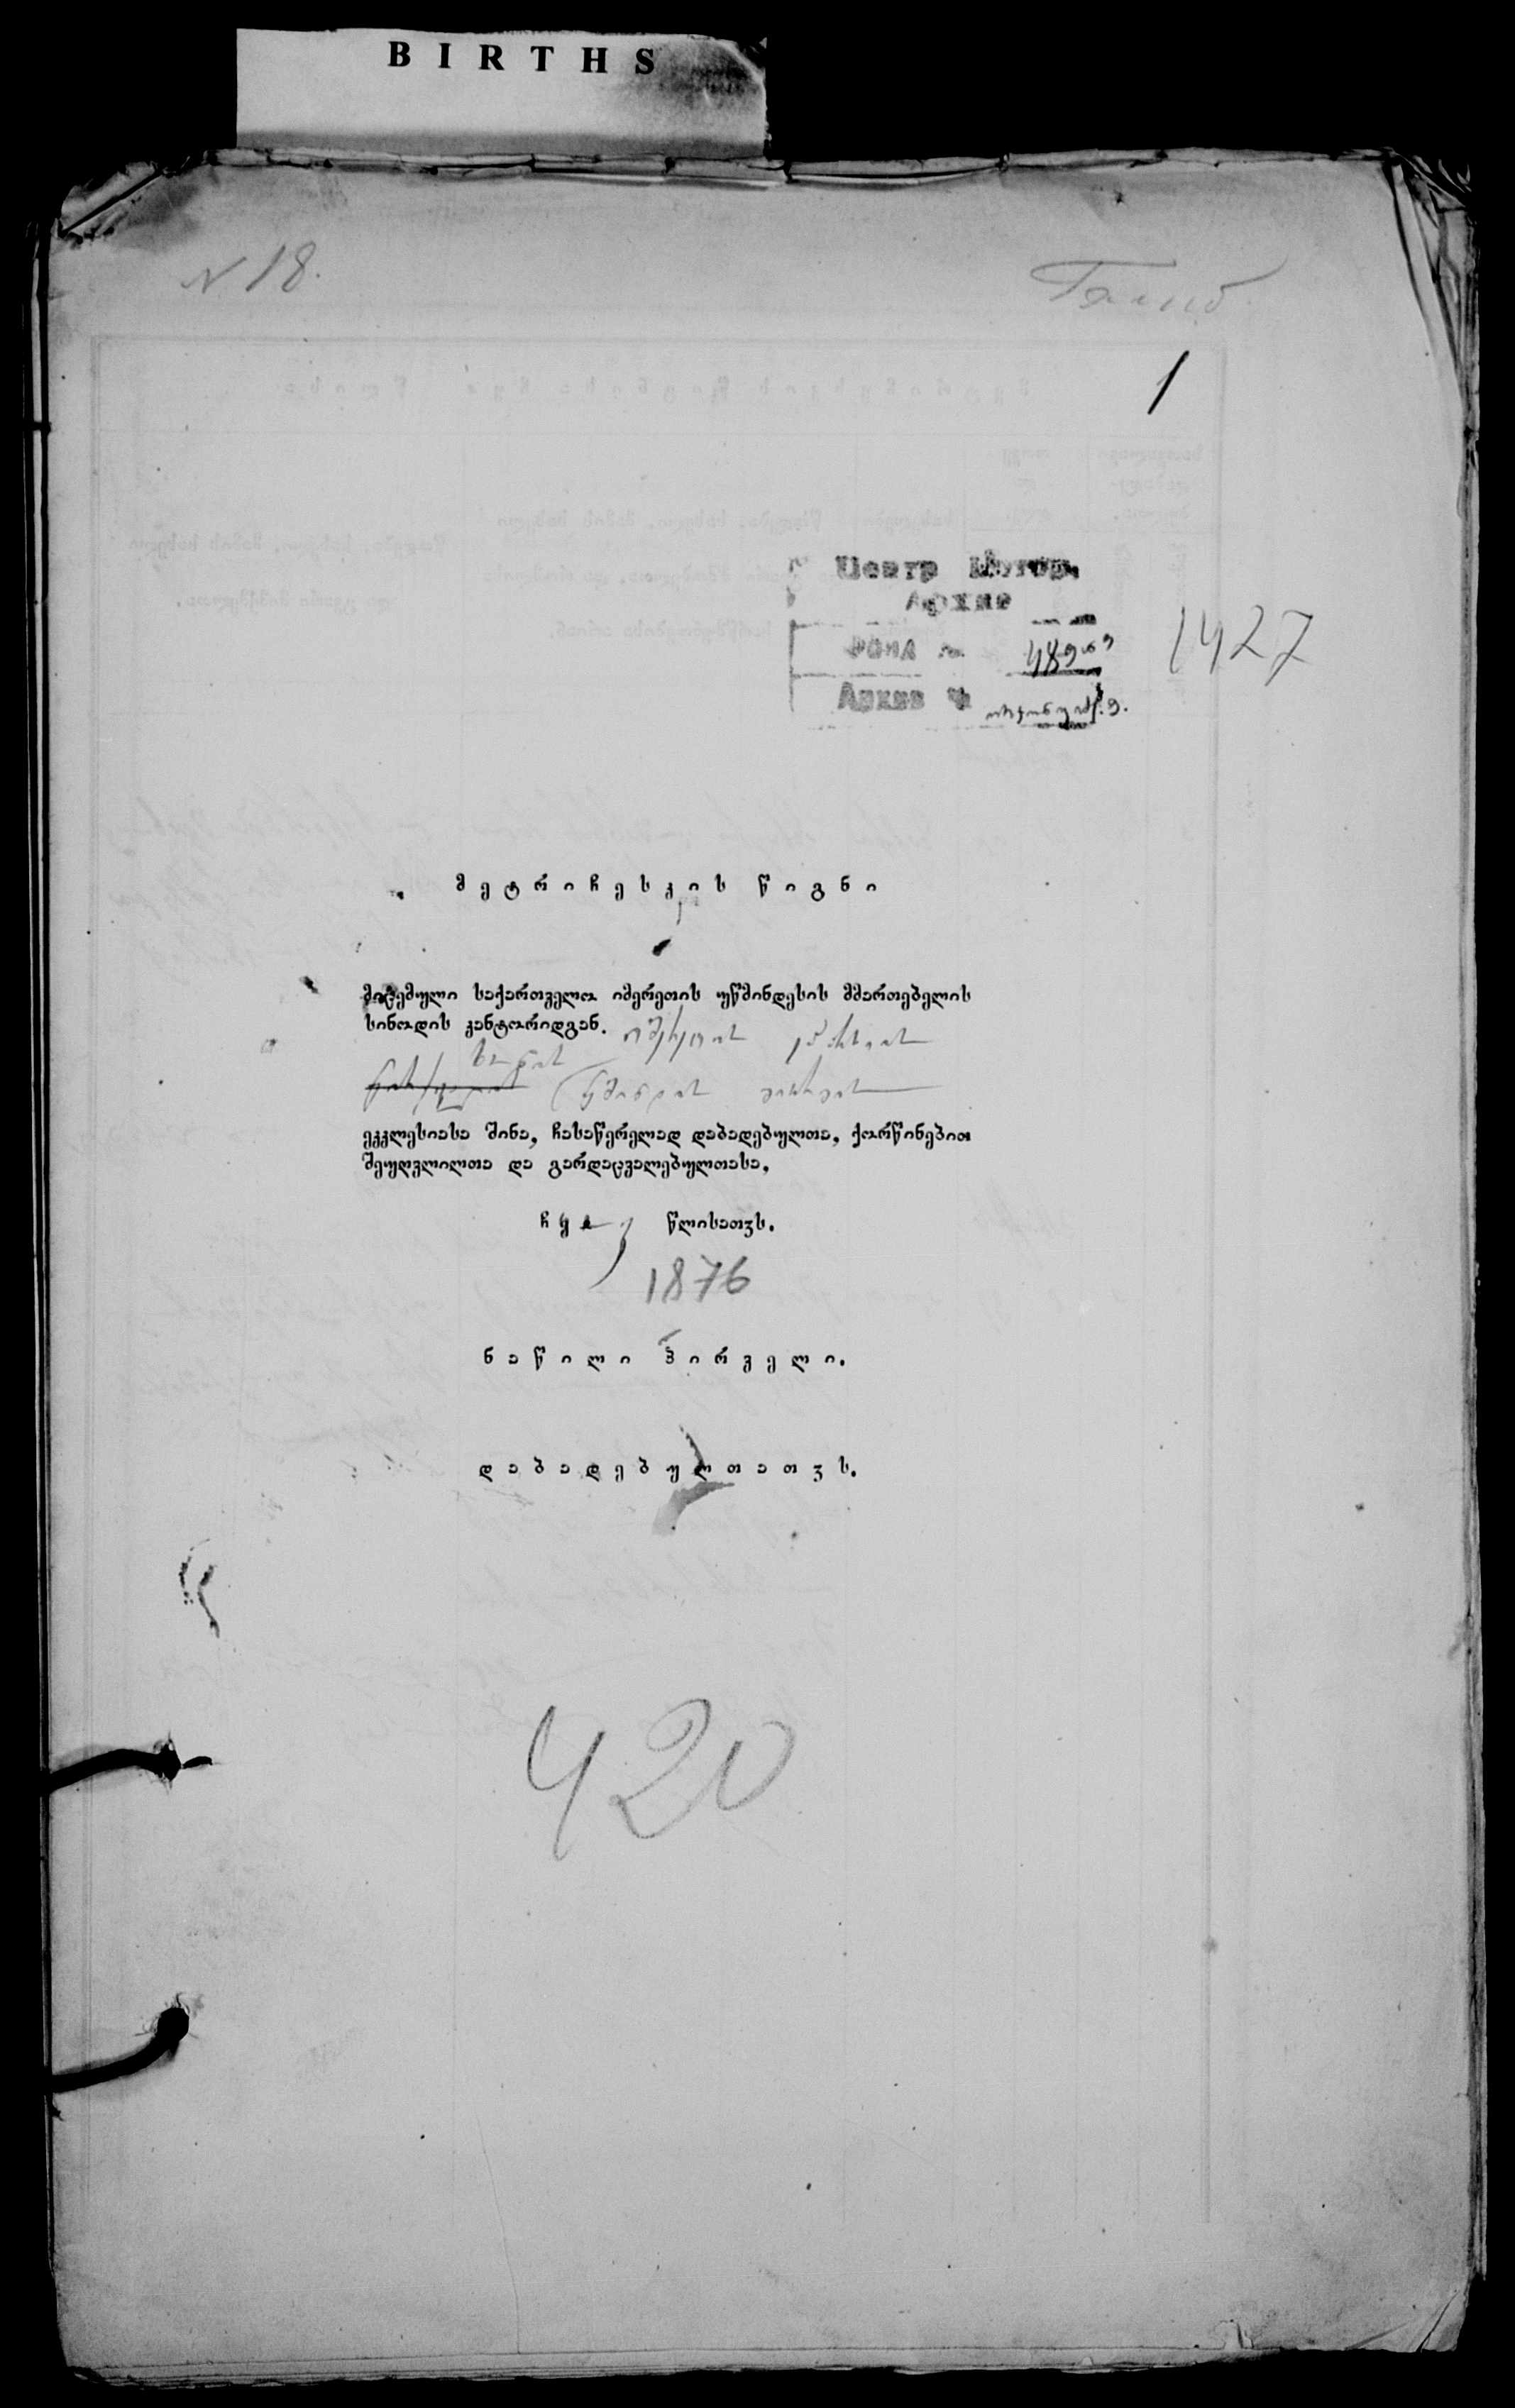 BIRTHS
N 18.
1
Центр Истор.
Архив
Фонд № 489
1427
Архив №
მეტრიჩესკის წიგნი
მიცემული საქართველო იმერეთის უწმინდესის მმართებელის
სინოდის კანტორიდგან. იმერეთის ეპარხიის
წმინდის გიორგის
ეკკლესიასა შინა, ჩასაწერელად დაბადებულთა, ქორწინებით
შეუღვლილთა და გარდაცვალებულთასა,
ჩყ წლისათჳს.
1876
ნაწილი პირველი.
დაბადებულთათჳს.
420